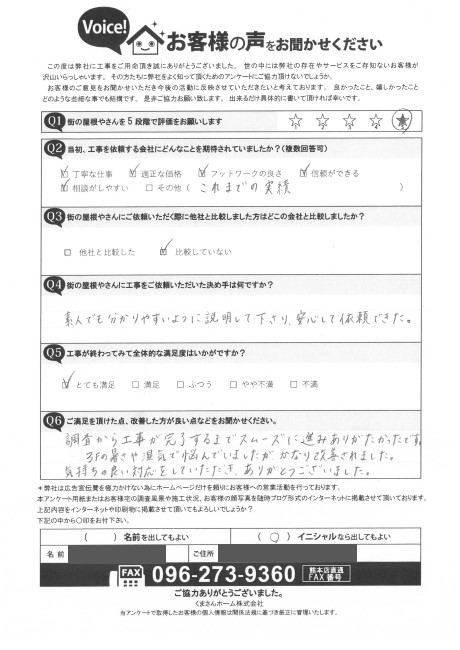 Voice!
お客様の声をお聞かせください
この度は弊社に工事をご用命頂き誠にありがとうございました。 世の中には弊社の存在やサービスをご存知ないお客様が
沢山いらっしゃいます。 その方たちに弊社をよく知って頂くためのアンケートにご協力頂けないでしょうか。
お客様のご意見をお聞かせいただき今後の活動に反映させていただきたいと考えております。 良かったこと、嬉しかったこと
どのような些細な事でも結構です。 是非ご協力お願い致します。 出来るだけ具体的に書いて頂ければ幸いです。
Q1 街の屋根やさんを5段階で評価をお願いします ☆1 ☆2 ☆3 ☆4 ★
Q2 当初、工事を依頼する会社にどんなことを期待されていましたか？(複数回答可)
☑ 丁寧な仕事 ☑ 適正な価格 ☑ フットワークの良さ ☑ 信頼ができる
☑ 相談がしやすい □ その他 ( これまでの実績 )
Q3 街の屋根やさんにご依頼いただく際に他社と比較しました方はどこの会社と比較しましたか？
□ 他社と比較した ☑ 比較していない
Q4 街の屋根やさんに工事をご依頼いただいた決め手は何ですか？
素人でも分かりやすいように説明して下さり、安心して依頼できた。
Q5 工事が終わってみて全体的な満足度はいかがですか？
☑ とても満足 □ 満足 □ ふつう □ やや不満 □ 不満
Q6 ご満足を頂けた点、改善した方が良い点などをお聞かせください。
調査から工事が完了するまでスムーズに進みありがたかったです。
3Fの暑さや湿気で悩んでいましたが、かなり改善されました。
気持ちの良い対応をしていただき、ありがとうございました。
＊弊社は広告宣伝費を極力かけない為にホームページだけを頼りにお客様への営業活動を行っております。
本アンケート用紙またはお客様宅の調査風景や施工状況、お客様の顔写真を随時ブログ形式のインターネットに掲載させて頂いております。
上記内容をインターネットや印刷物に掲載させて頂いてもよろしいでしょうか？
下記の中から〇印をお付下さい。
( ) 名前を出してもよい ( 〇 ) イニシャルなら出してもよい
名前 ご住所
FAX 096-273-9360 熊本店直通 FAX番号
ご協力ありがとうございました。
くまさんホーム株式会社
当アンケートで取得したお客様の個人情報は関係法規に基づき厳正に管理いたします。